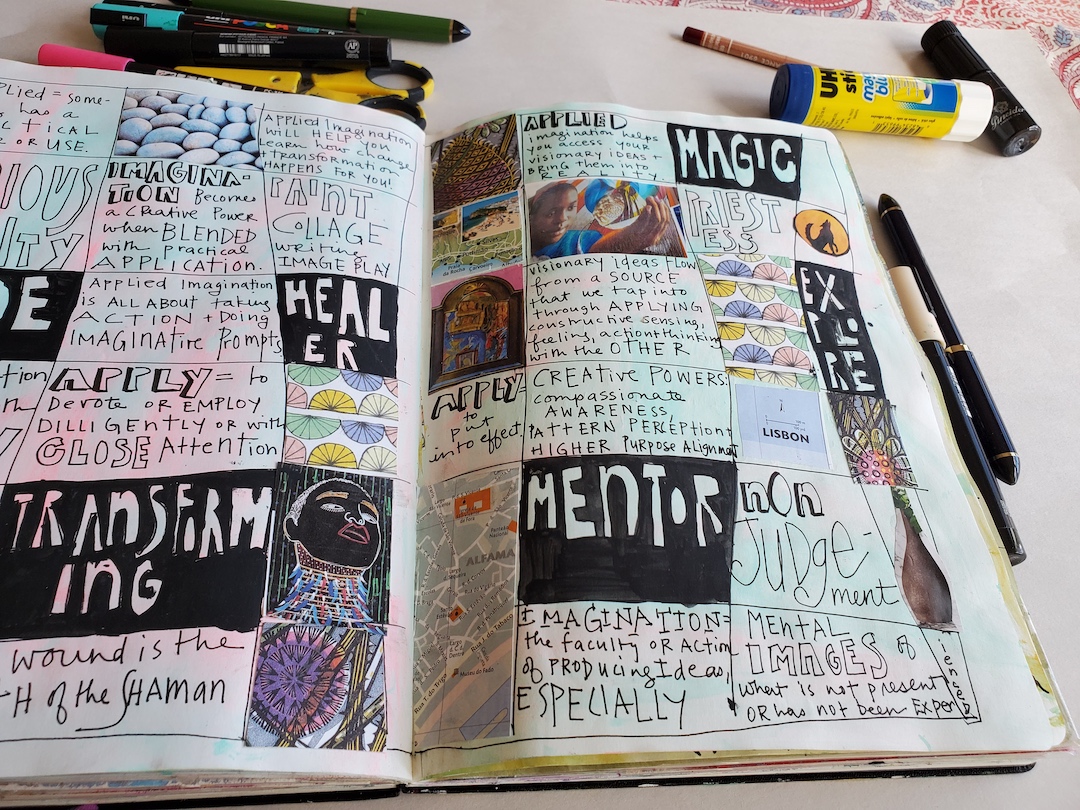 UHU
stic
magic
blue
plied = some-
has a
CTICAL
OR USE.
IOUS
ITY
IMAGINA-
TION Becomes
a creative Power
when BLENDED
with practical
APPLICATION.
Applied Imagination
WILL HELP you
Learn how change
+ transformation
HAPPENS FOR YOU!
PAINT
COLLAGE
writing
IMAGE PLAY
DE
Applied Imagination
is ALL ABOUT taking
ACTION + Doing
IMAGINATIVE Prompts
HEAL
ER
tion
APPLY = to
Devote OR EMPLOY
DILLIGENTLY OR with
CLOSE Attention
TRANSFORM
ING
wound is the
TH OF the SHAMAN
APPLIED
imagination helps
you access your
visionary IDEAS +
BRING them into
REALITY
MAGIC
PRIEST
ESS
visionary ideas flow
from a SOURCE
that we tap into
through APPLYING
constructive sensing,
feeling, action+thinking
with the OTHER
EX
PLO
RE
APPLY=
to
put
into effect
CREATIVE POWERS:
compassionate
AWARENESS,
PATTERN PERCEPTION+
HIGHER Purpose Alignment
LISBON
ALFAMA
Museu do Fado
Rua do Tabaco
MENTOR
NON
JUDGE-
ment
IMAGINATION=
the faculty OR Action
of PRODUCING Ideas,
ESPECIALLY
MENTAL
IMAGES OF
what is not present
OR has not been Exper
ienced